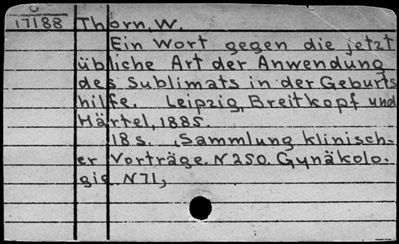 17188 Thorn, W.
Ein Wort gegen die jetzt
übliche Art der Anwendung
des Sublimats in der Geburts
hilfe. Leipzig, Breitkopf und
Härtel, 1885.
18 s. (Sammlung klinisch-
er Vorträge. N 250. Gynäkolo-
gie. N 71,